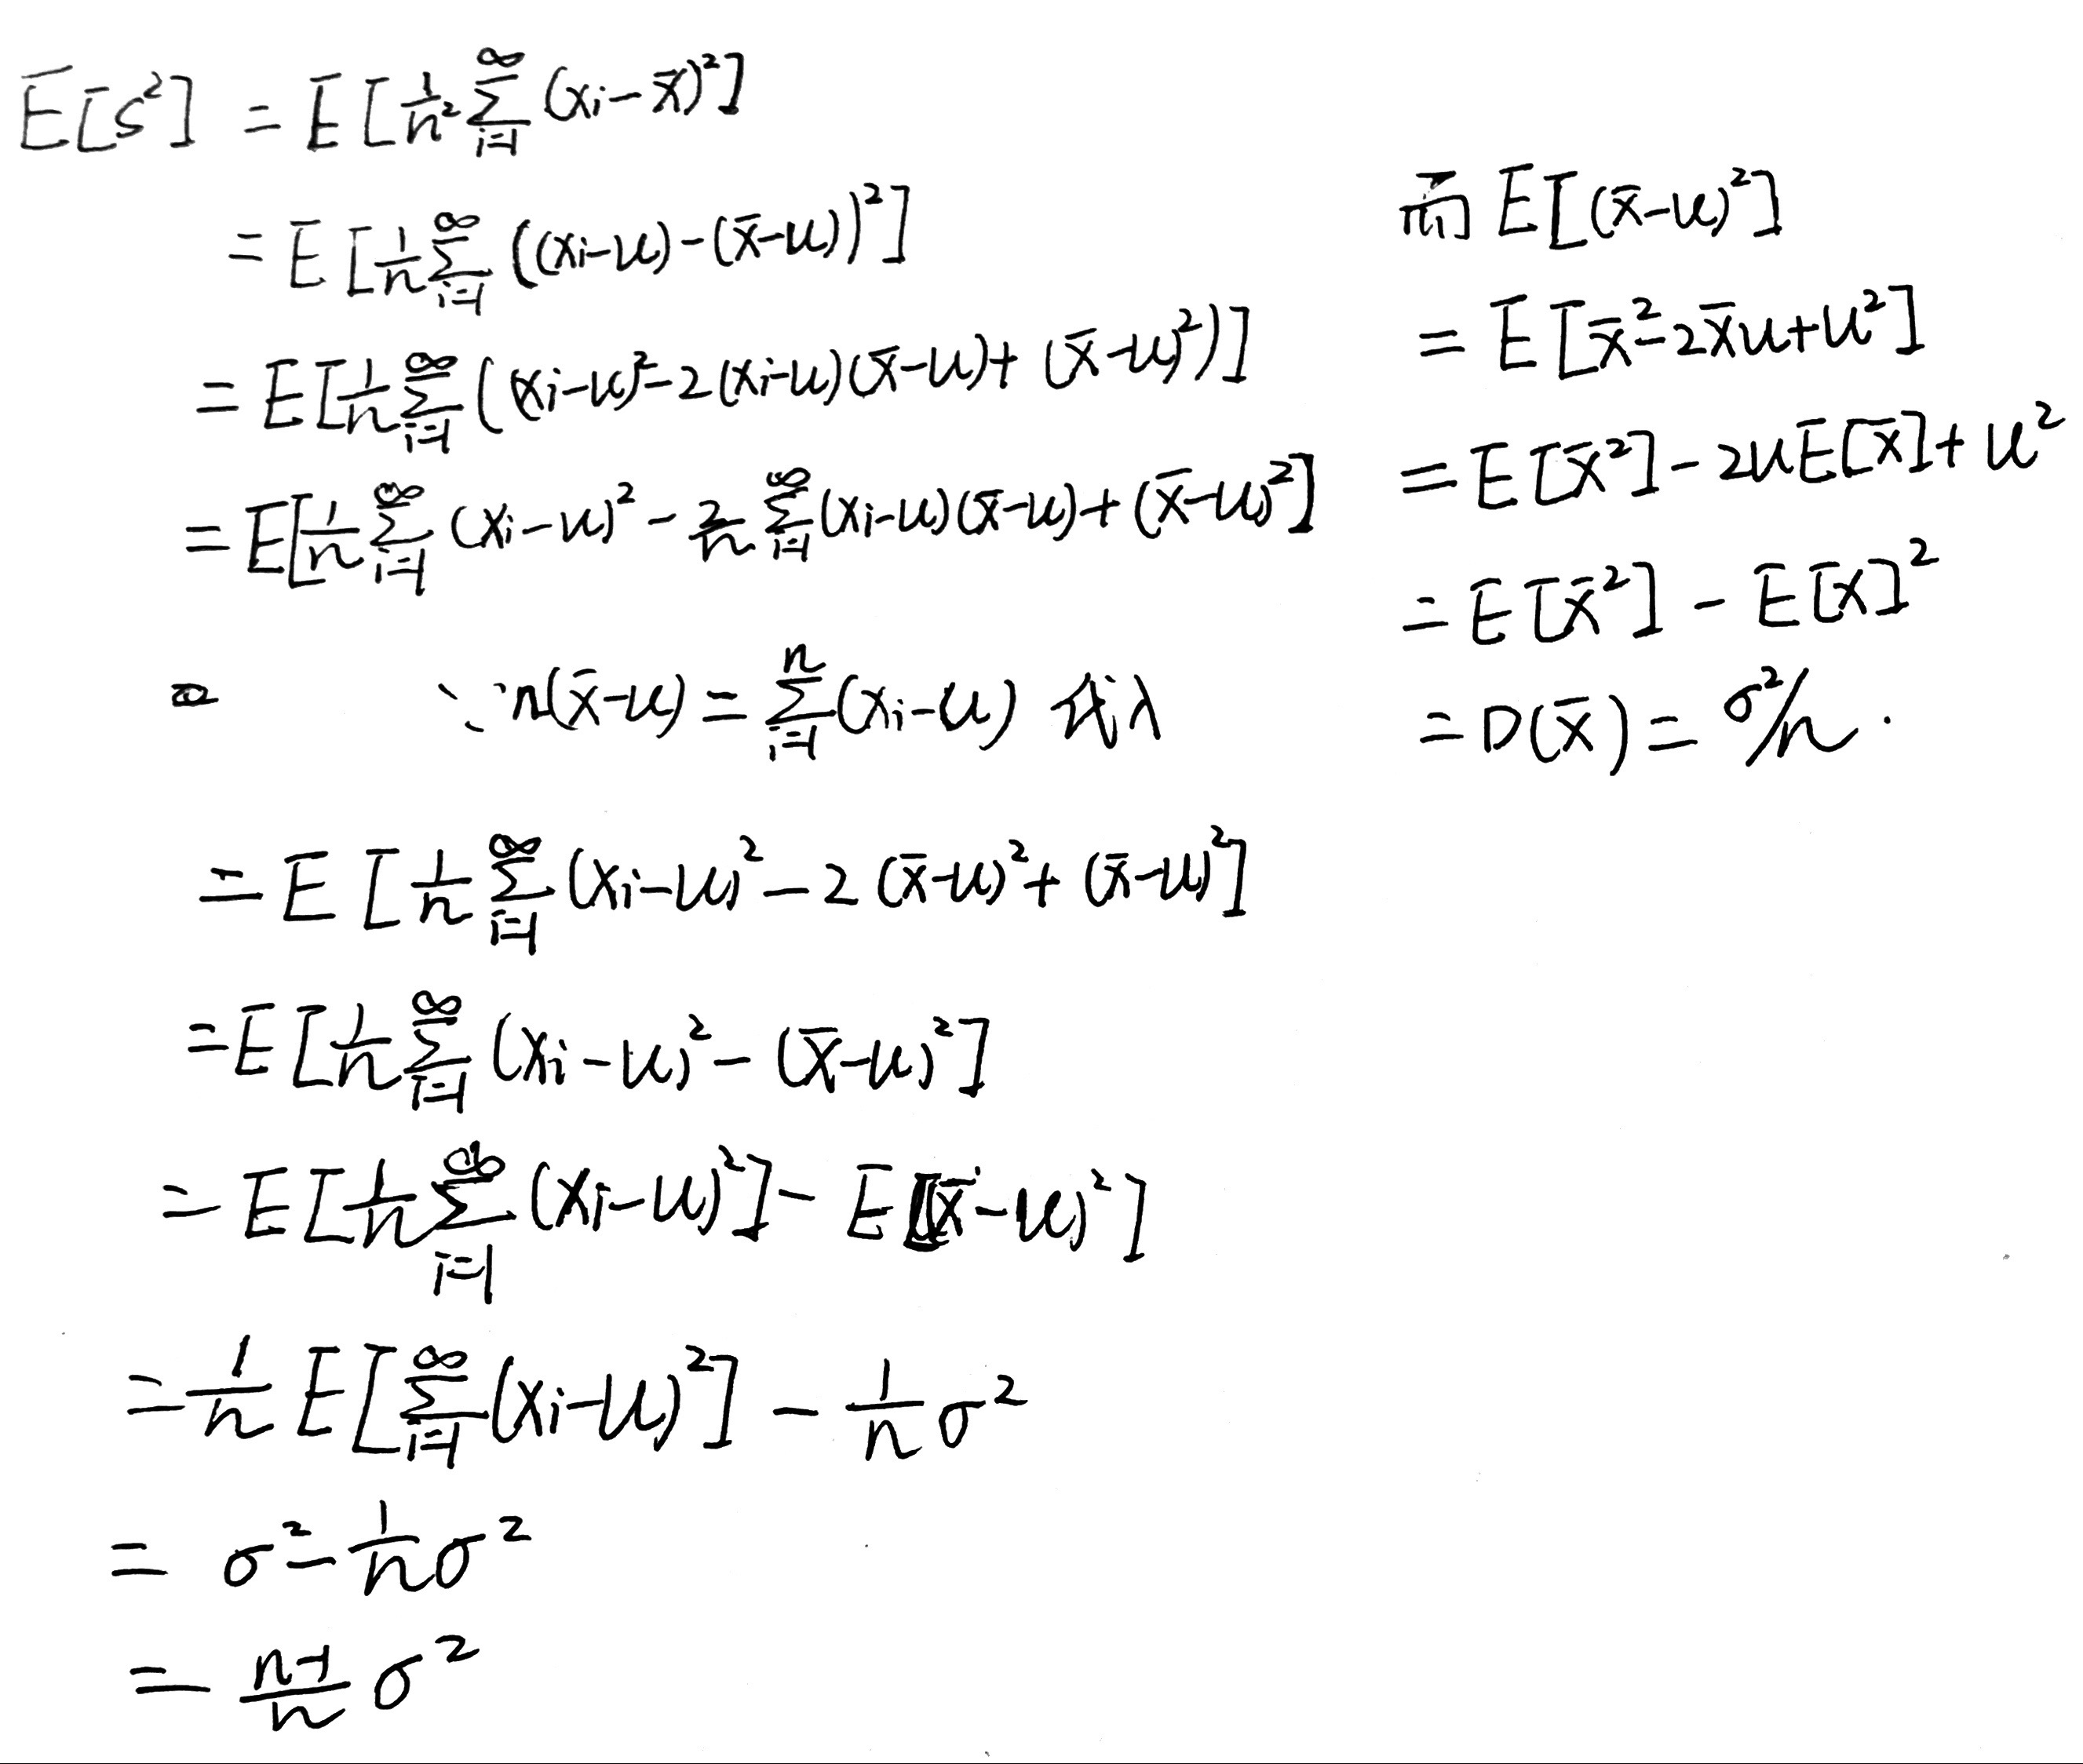 E[S²] = E[1/n² ∑_{i=1}^{∞} (xi-x̄)²]
= E[1/n ∑_{i=1}^{∞} ((xi-u)-(x̄-u))²]
= E[1/n ∑_{i=1}^{∞} ((xi-u)²-2(xi-u)(x̄-u)+(x̄-u)²)]
= E[1/n ∑_{i=1}^{∞} (xi-u)² - 2/n ∑_{i=1}^{∞} (xi-u)(x̄-u)+(x̄-u)²]
∵ n(x̄-u) = ∑_{i=1}^{n} (xi-u) 代入
= E[1/n ∑_{i=1}^{∞} (xi-u)² - 2(x̄-u)² + (x̄-u)²]
= E[1/n ∑_{i=1}^{∞} (xi-u)² - (x̄-u)²]
= E[1/n ∑_{i=1}^{∞} (xi-u)²] - E[(x̄-u)²]
= 1/n E[∑_{i=1}^{∞} (xi-u)²] - 1/n σ²
= σ² - 1/n σ²
= n-1/n σ²
而 E[(x̄-u)²]
= E[x̄²-2x̄u+u²]
= E[x̄²] - 2uE[x̄] + u²
= E[x̄²] - E[x]²
= D(x̄) = σ²/n .